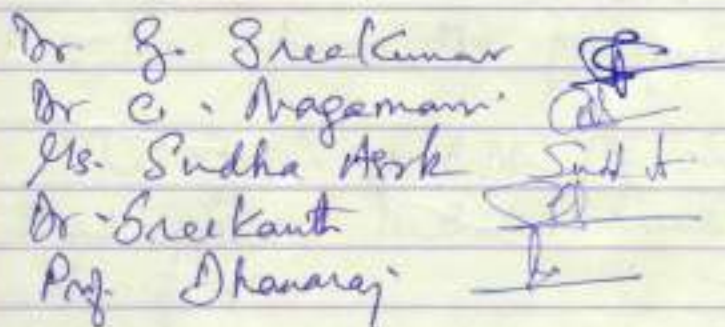 Dr G. Sreekumar
Dr C. Nagamani
Ms. Sudha Ask
Dr. Sreekanth
Prof. Dhanaraj